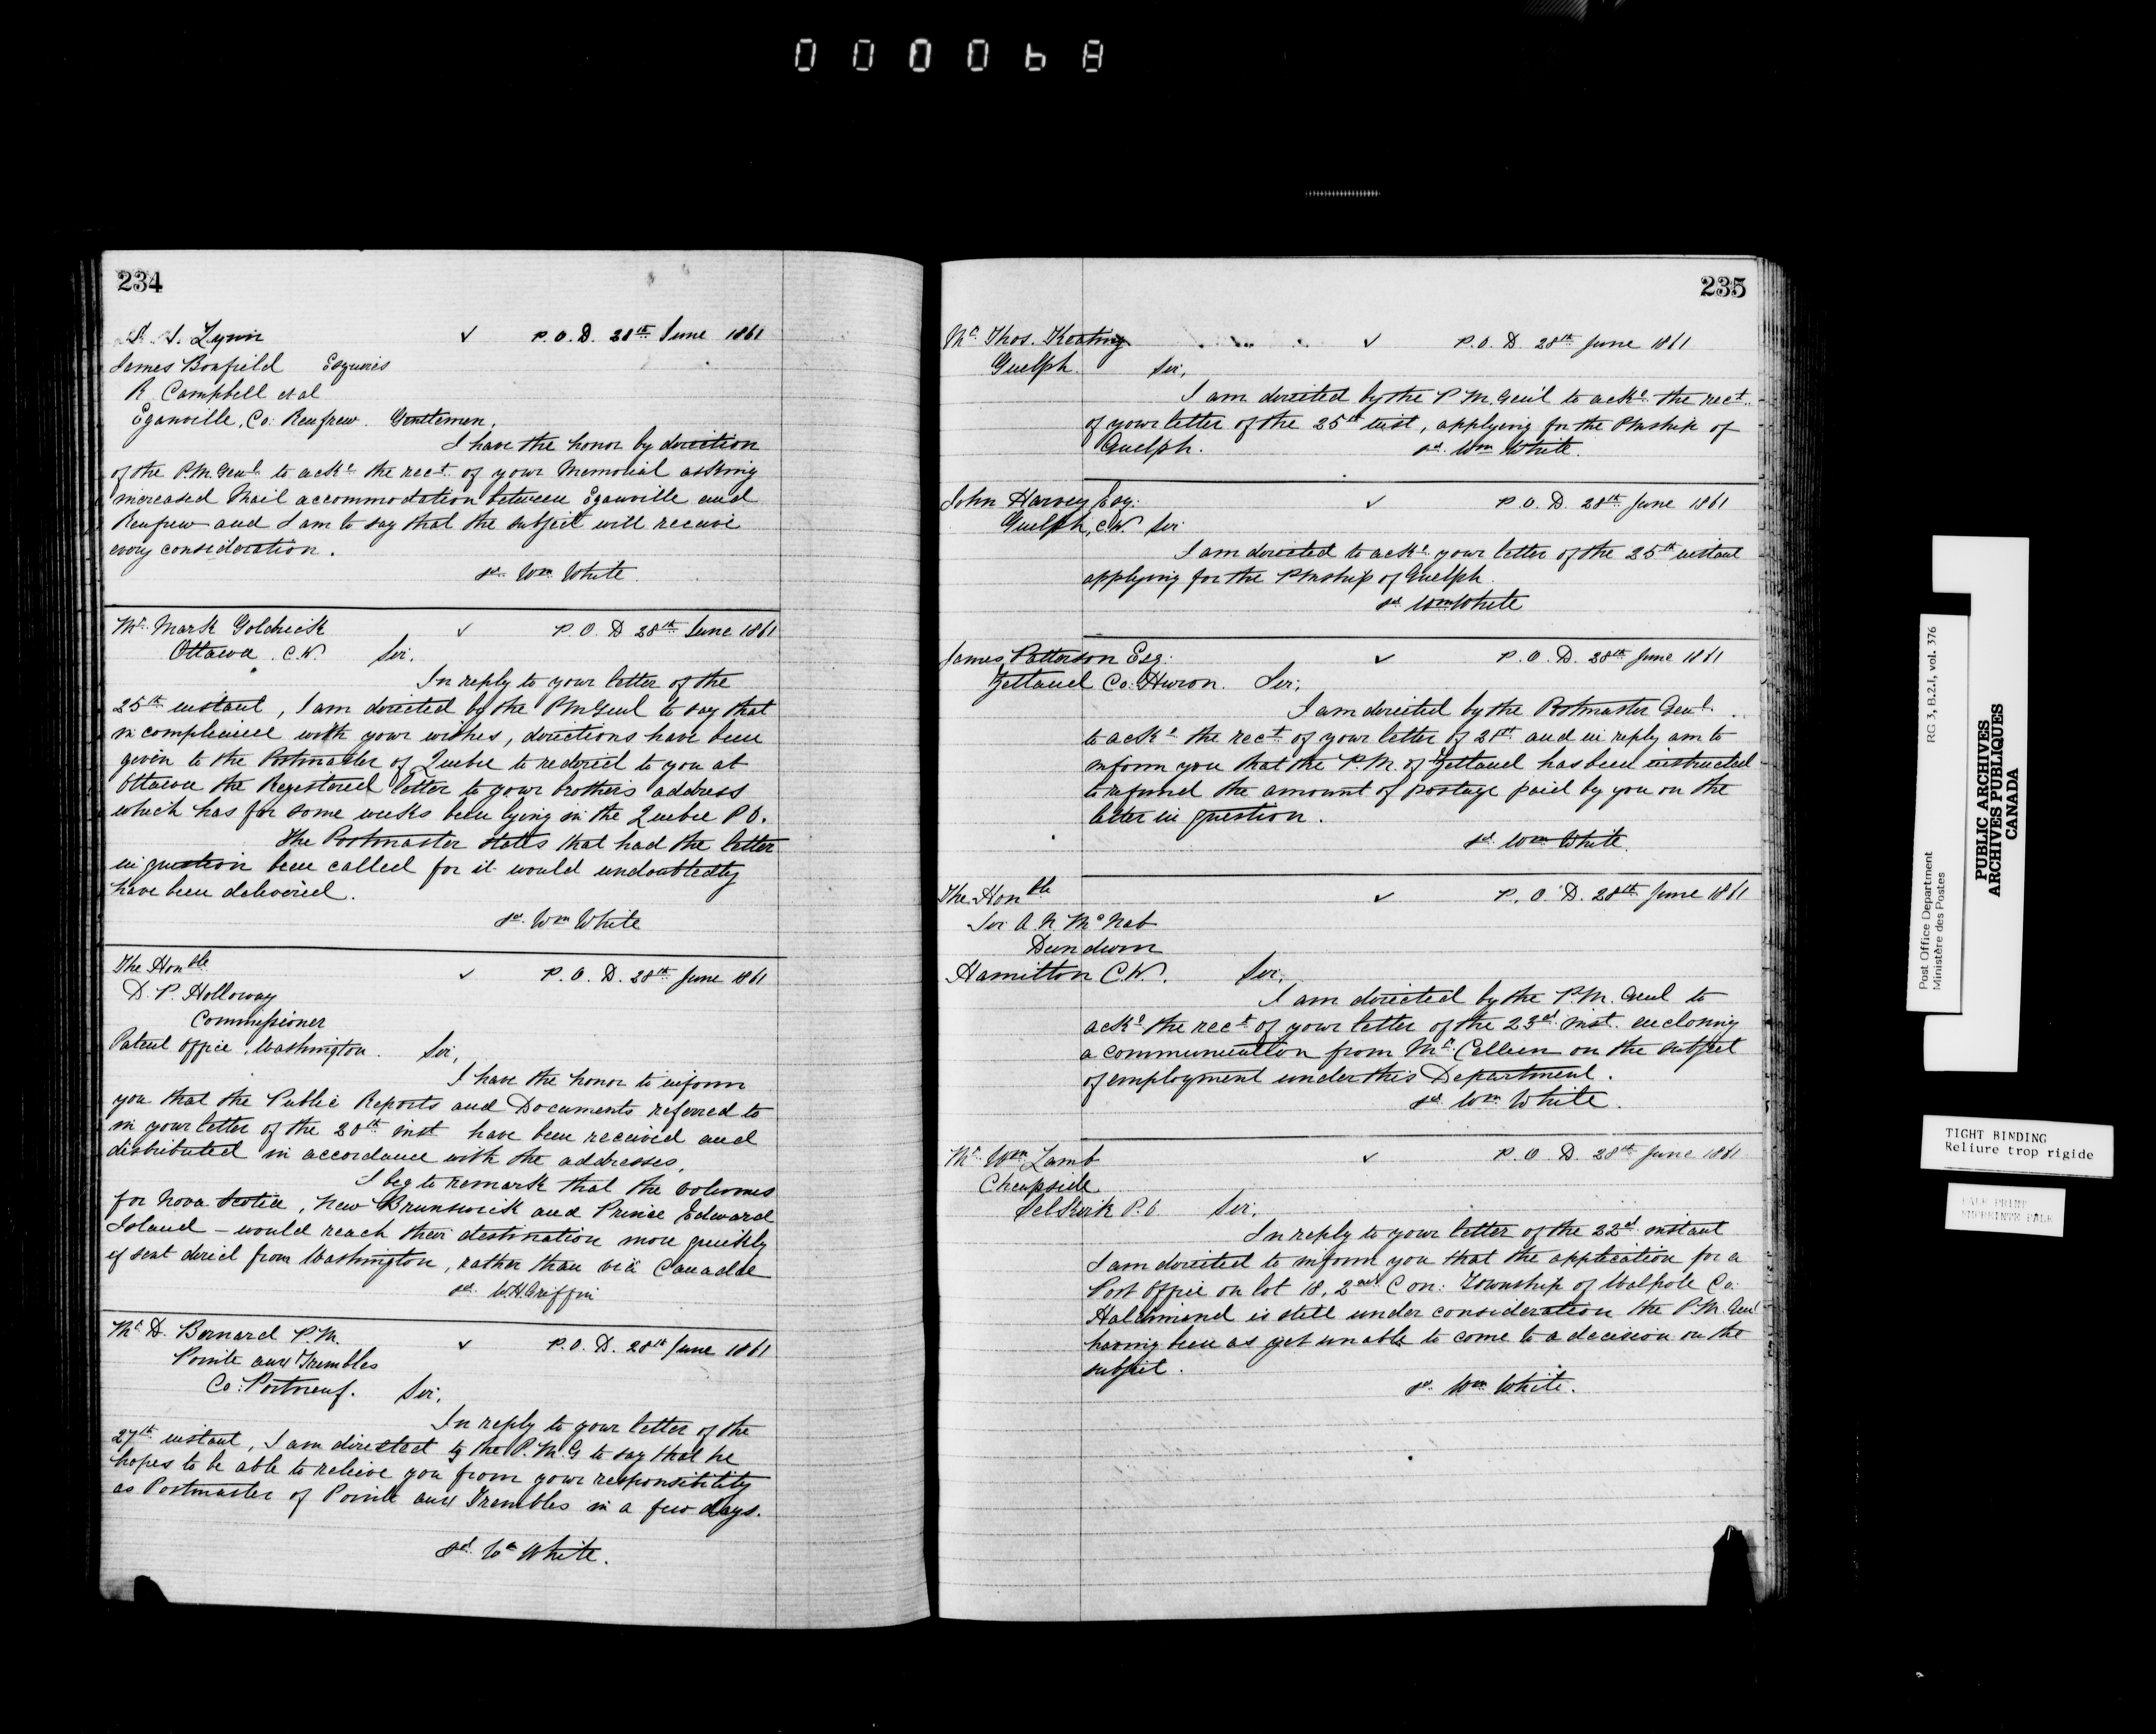 000068
234
S. S. Lynn ✓ P.O.D. 28th June 1861
James Bonfield Esquires
R Campbell et al
Eganville, Co: Renfrew. Gentlemen,
I have the honor by direction
of the P.M. Genl. to ackl. the rect. of your Memorial asking
increased Mail accommodation between Eganville and
Renfrew and I am to say that the subject will receive
every consideration.
sd. Wm White.
Mr. Mark Goldrick ✓ P.O.D 28th June 1861
Ottawa. C.W. Sir,
In reply to your letter of the
25th instant, I am directed by the P M Genl to say that
in compliance with your wishes, directions have been
given to the Postmaster of Quebec to redirect to you at
Ottawa the Registered letter to your brothers address
which has for some weeks been lying in the Quebec P O.
The Postmaster states that had the letter
in question been called for it would undoubtedly
have been delivered.
sd. Wm White
The Honble ✓ P.O.D. 28th June 1861
D. P. Holloway
Commissioner
Patent Office, Washington. Sir,
I have the honor to inform
you that the Public Reports and Documents referred to
in your letter of the 20th inst have been received and
distributed in accordance with the addresses.
I beg to remark that the volumes
for Nova Scotia, New Brunswick and Prince Edward
Island – would reach their destination more quickly
if sent direct from Washington, rather than via Canada
sd. W.H. Griffin
Mr D. Bernard P.M. ✓ P.O.D. 28th June 1861
Pointe aux Trembles
Co: Portneuf. Sir,
In reply to your letter of the
27th instant, I am directed by the P.M.G to say that he
hopes to be able to relieve you from your responsibility
as Postmaster of Pointe aux Trembles in a few days.
sd. Wm White.
235
Mr. Thos. Keating ✓ P.O.D. 28th June 1861
Guelph. Sir,
I am directed by the P M. Genl to ackl. the rect.
of your letter of the 25th inst, applying for the Pmship of
Guelph. sd. Wm White.
John Harvey Esq. ✓ P.O.D. 28th June 1861
Guelph, C.W. Sir
I am directed to ackl. your letter of the 25th instant
applying for the Pmship of Guelph.
sd. Wm White
James Patterson Esq. ✓ P.O.D. 28th June 1861
Zetland Co: Huron. Sir,
I am directed by the Postmaster Genl.
to ackl. the rect. of your letter of 21st and in reply am to
inform you that the P.M. of Zetland has been instructed
to refund the amount of postage paid by you on the
letter in question.
sd. Wm White.
The Honble ✓ P.O.D. 28th June 1861
Sir A. N. McNab
Dundurn
Hamilton C.W. Sir,
I am directed by the P.M. Genl to
ackl. the rect. of your letter of the 23d. inst. enclosing
a communication from Mr. Cullen on the subject
of employment under this Department.
sd. Wm White.
Mr. Wm Lamb ✓ P.O.D. 28th June 1861
Cheapside
Selkirk P.O. Sir,
In reply to your letter of the 22d. instant
I am directed to inform you that the application for a
Post Office on lot 18, 2nd Con: Township of Walpole Co:
Haldimand is still under consideration the P.M. Genl
having been as yet unable to come to a decision on the
subject.
sd. Wm White.
RG 3, B.2.I, vol. 376
Post Office Department
Ministère des Postes
PUBLIC ARCHIVES
ARCHIVES PUBLIQUES
CANADA
TIGHT BINDING
Reliure trop rigide
PALE PRINT
EMPREINTE PALE